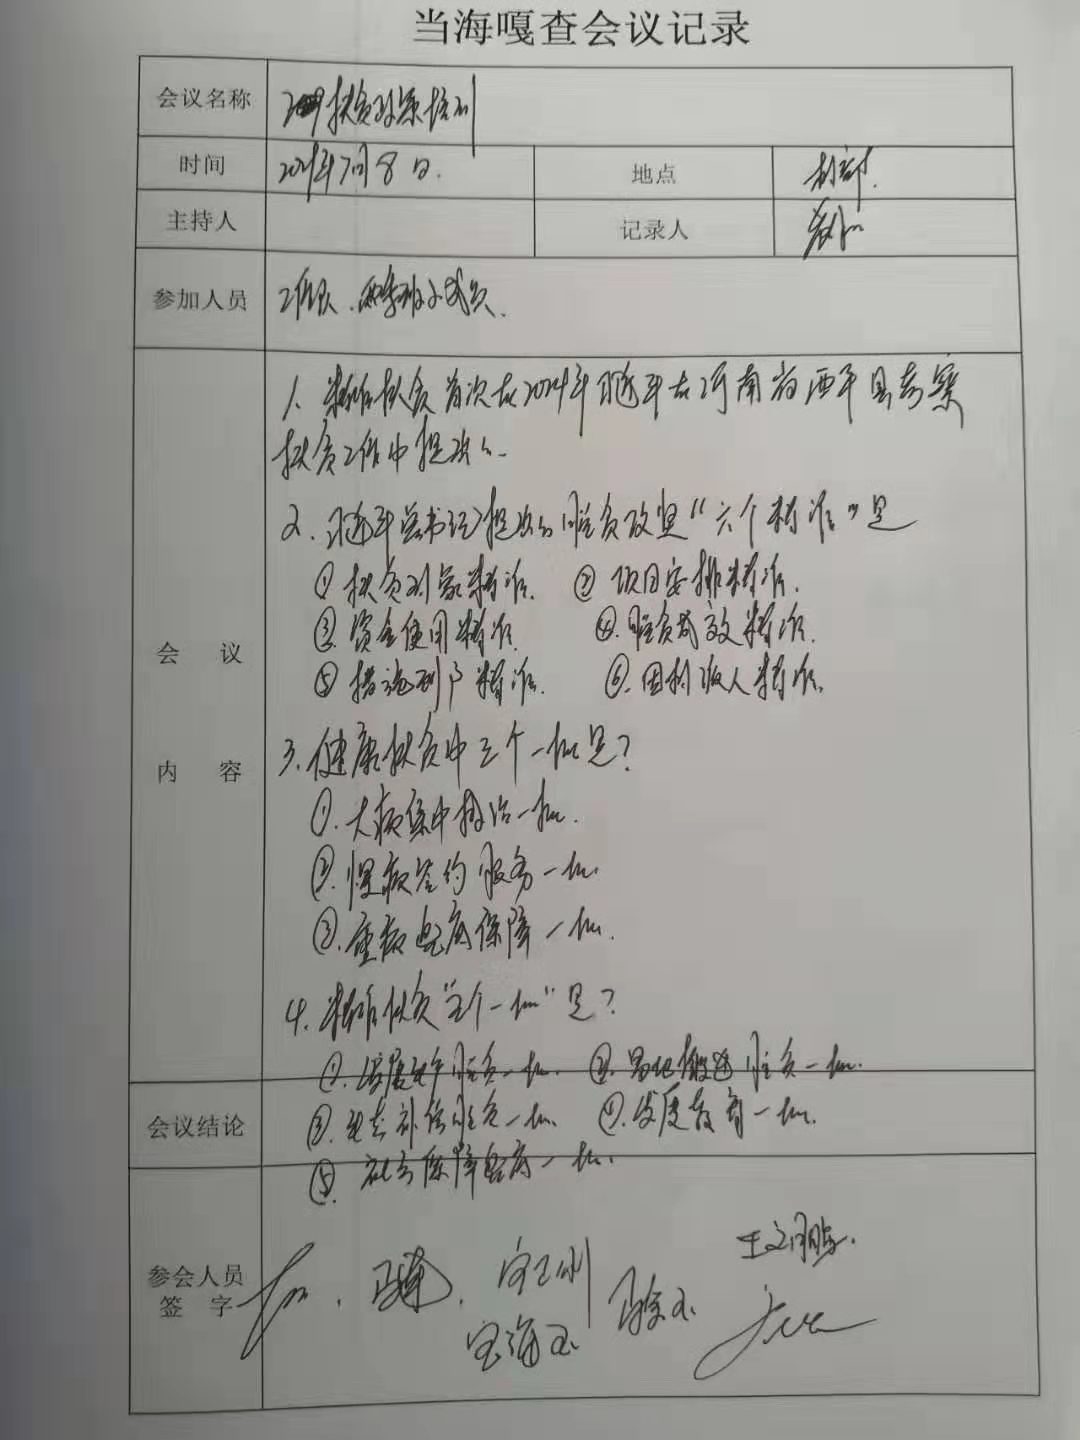 当海嘎查会议记录
会议名称 扶贫政策培训
时间 年7月8日. 地点 村部.
主持人 记录人
参加人员 工作队、两委班子成员.
会议内容
1、精准扶贫首次在2014年习近平在河南省西平县考察
扶贫工作中提出的.
2、习近平总书记提出的脱贫攻坚“六个精准”是
①扶贫对象精准. ②项目安排精准.
③资金使用精准. ④.脱贫成效精准.
⑤措施到户精准. ⑥.因村派人精准.
3.健康扶贫中三个一批是?
①.大病集中救治一批.
②.慢病签约服务一批.
③.重病兜底保障一批.
4.精准扶贫“五个一批”是?
①.发展生产脱贫一批. ②.易地搬迁脱贫一批.
会议结论
③.生态补偿脱贫一批. ④.发展教育一批.
⑤.社会保障兜底一批.
参会人员
签字